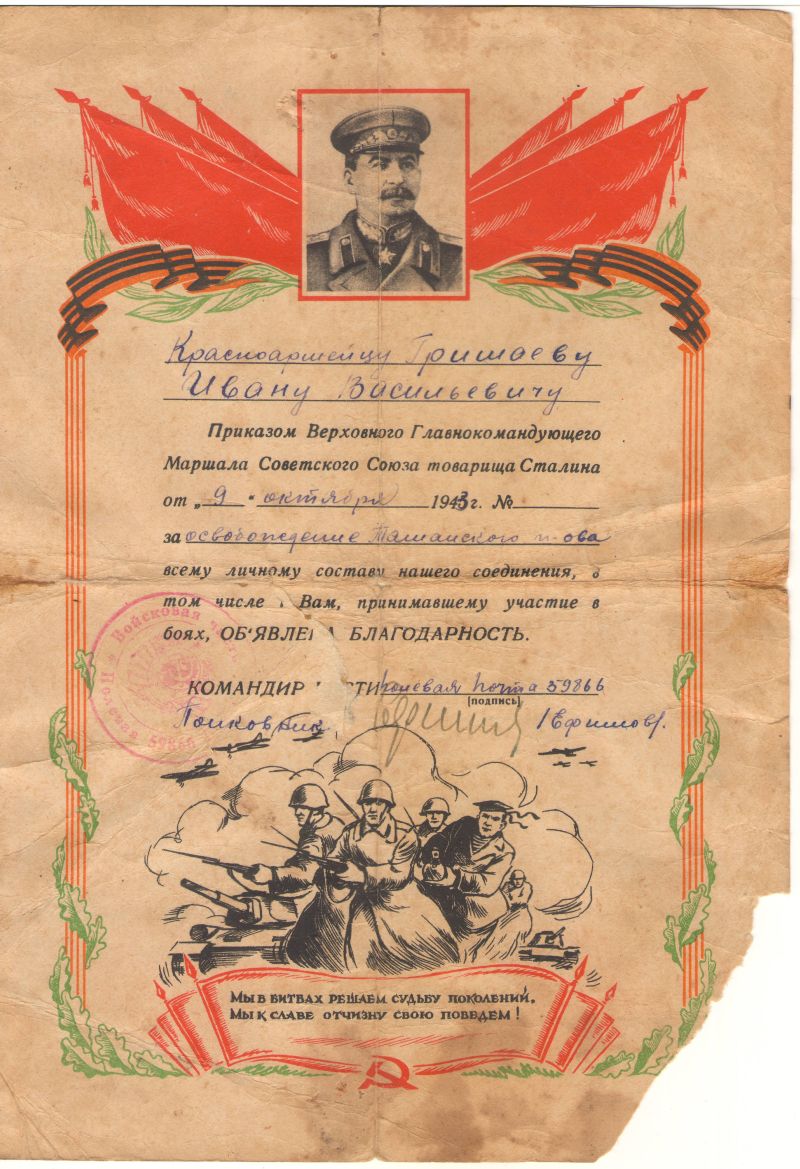 Красноармейцу Гришаеву
Ивану Васильевичу
Приказом Верховного Главнокомандующего
Маршала Советского Союза товарища Сталина
от „9“ октября 1943 г. №
за освобождение Таманского п-ова
всему личному составу нашего соединения, в
том числе и Вам, принимавшему участие в
боях, ОБ'ЯВЛЕНА БЛАГОДАРНОСТЬ.
КОМАНДИР ЧАСТИ полевая почта 59866
[подпись]
Полковник /Ефимов/.
Войсковая часть
Полевая 59866
МЫ В БИТВАХ РЕШАЕМ СУДЬБУ ПОКОЛЕНИЙ,
МЫ К СЛАВЕ ОТЧИЗНУ СВОЮ ПОВЕДЕМ!